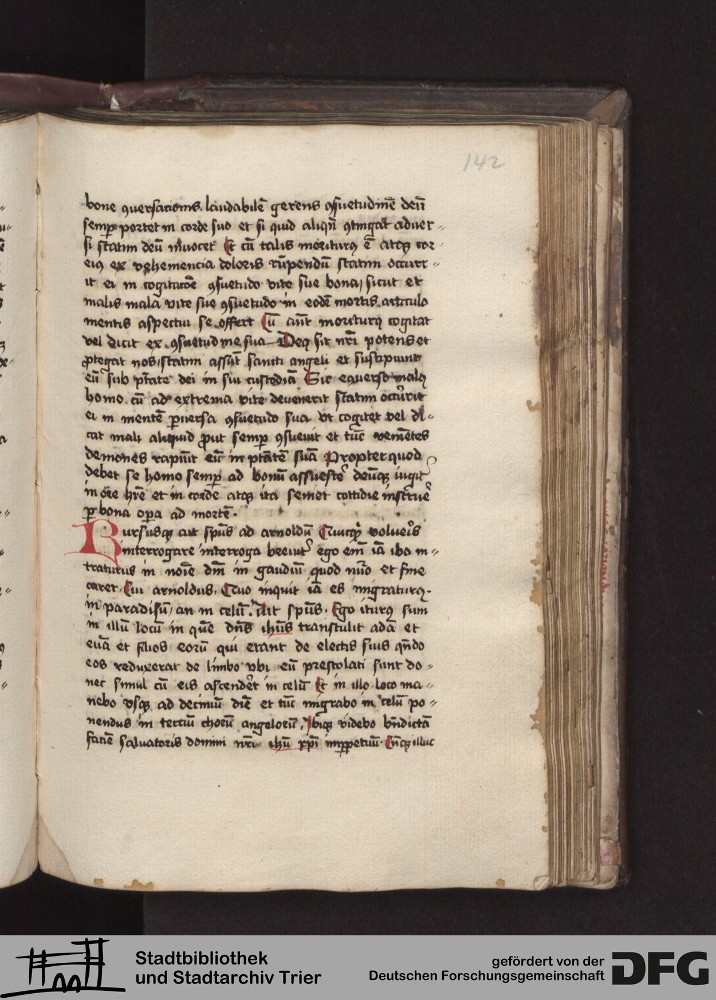 142
bone ꝯuersacionis laudabilē gerens ꝯsuetudinē deū
semꝑ portet in corde suo et si quid aliqn̄ ꝯtingat aduer-
si statim deū inuocet Et cū talis moriturꝯ ē atqꝫ cor
eiꝯ ex vehemencia doloris rūpendū statim occurr-
it ei in cogitacōe ꝯsuetudo vite sue bona, sicut et
malis mala vite sue ꝯsuetudo in eodē mortis articulo
mentis aspectui se offert Cū aūt moriturꝯ cogitat
vel dicit ex ꝯsuetudine sua Deꝯ sit nr̄i potens et
ꝓtegat nos, statim assūt sancti angeli et suscipiunt
eū sub ptāte dei in sui custodiā Sic eꝯuerso malꝯ
homo cū ad extrema vite deuenerit statim occurrit
ei in mentē ꝑuersa ꝯsuetudo sua vt cogitet vel di-
cat mali aliquid ꝓut semꝑ ꝯsueuit et tūc veniētes
demones rapiūt eū in ptātē suā Propter quod
debet se homo semꝑ ad bonū assuescē deūqꝫ iugit̾
in ore hr̄e et in corde atqꝫ ita semet cottidie instruē
ꝑ bona opa ad mortē.
Rursusqꝫ ait spūs ad arnoldū Cuicqꝫ volueris
interrogare interroga breuit̾ ego eīm iā ibo in-
traturus in noīe dm̄ in gaudiū quod nūo et fine
caret. Cui arnoldus. Quo inquit iā es migraturꝯ.
in paradisū, an in celū. Ait spūs. Ego iturꝯ sum
in illū locū in quē dn̄s ihūs transtulit adā et
euā et filios eorū qui erant de electis suis qn̄do
eos reduxerat de limbo vbi eū prestolati sunt do-
nec simul cū eis ascenderēt in celū Et in illo loco ma-
nebo vsqꝫ ad decimū diē et tūc migrabo in celū po-
nendus in terciū chorū angelorū, Ibiqꝫ videbo bn̄dictā
faciē saluatoris domini nr̄i ihū xp̄i imꝑpetuū. illuc
Stadtbibliothek
und Stadtarchiv Trier
gefördert von der
Deutschen Forschungsgemeinschaft
DFG